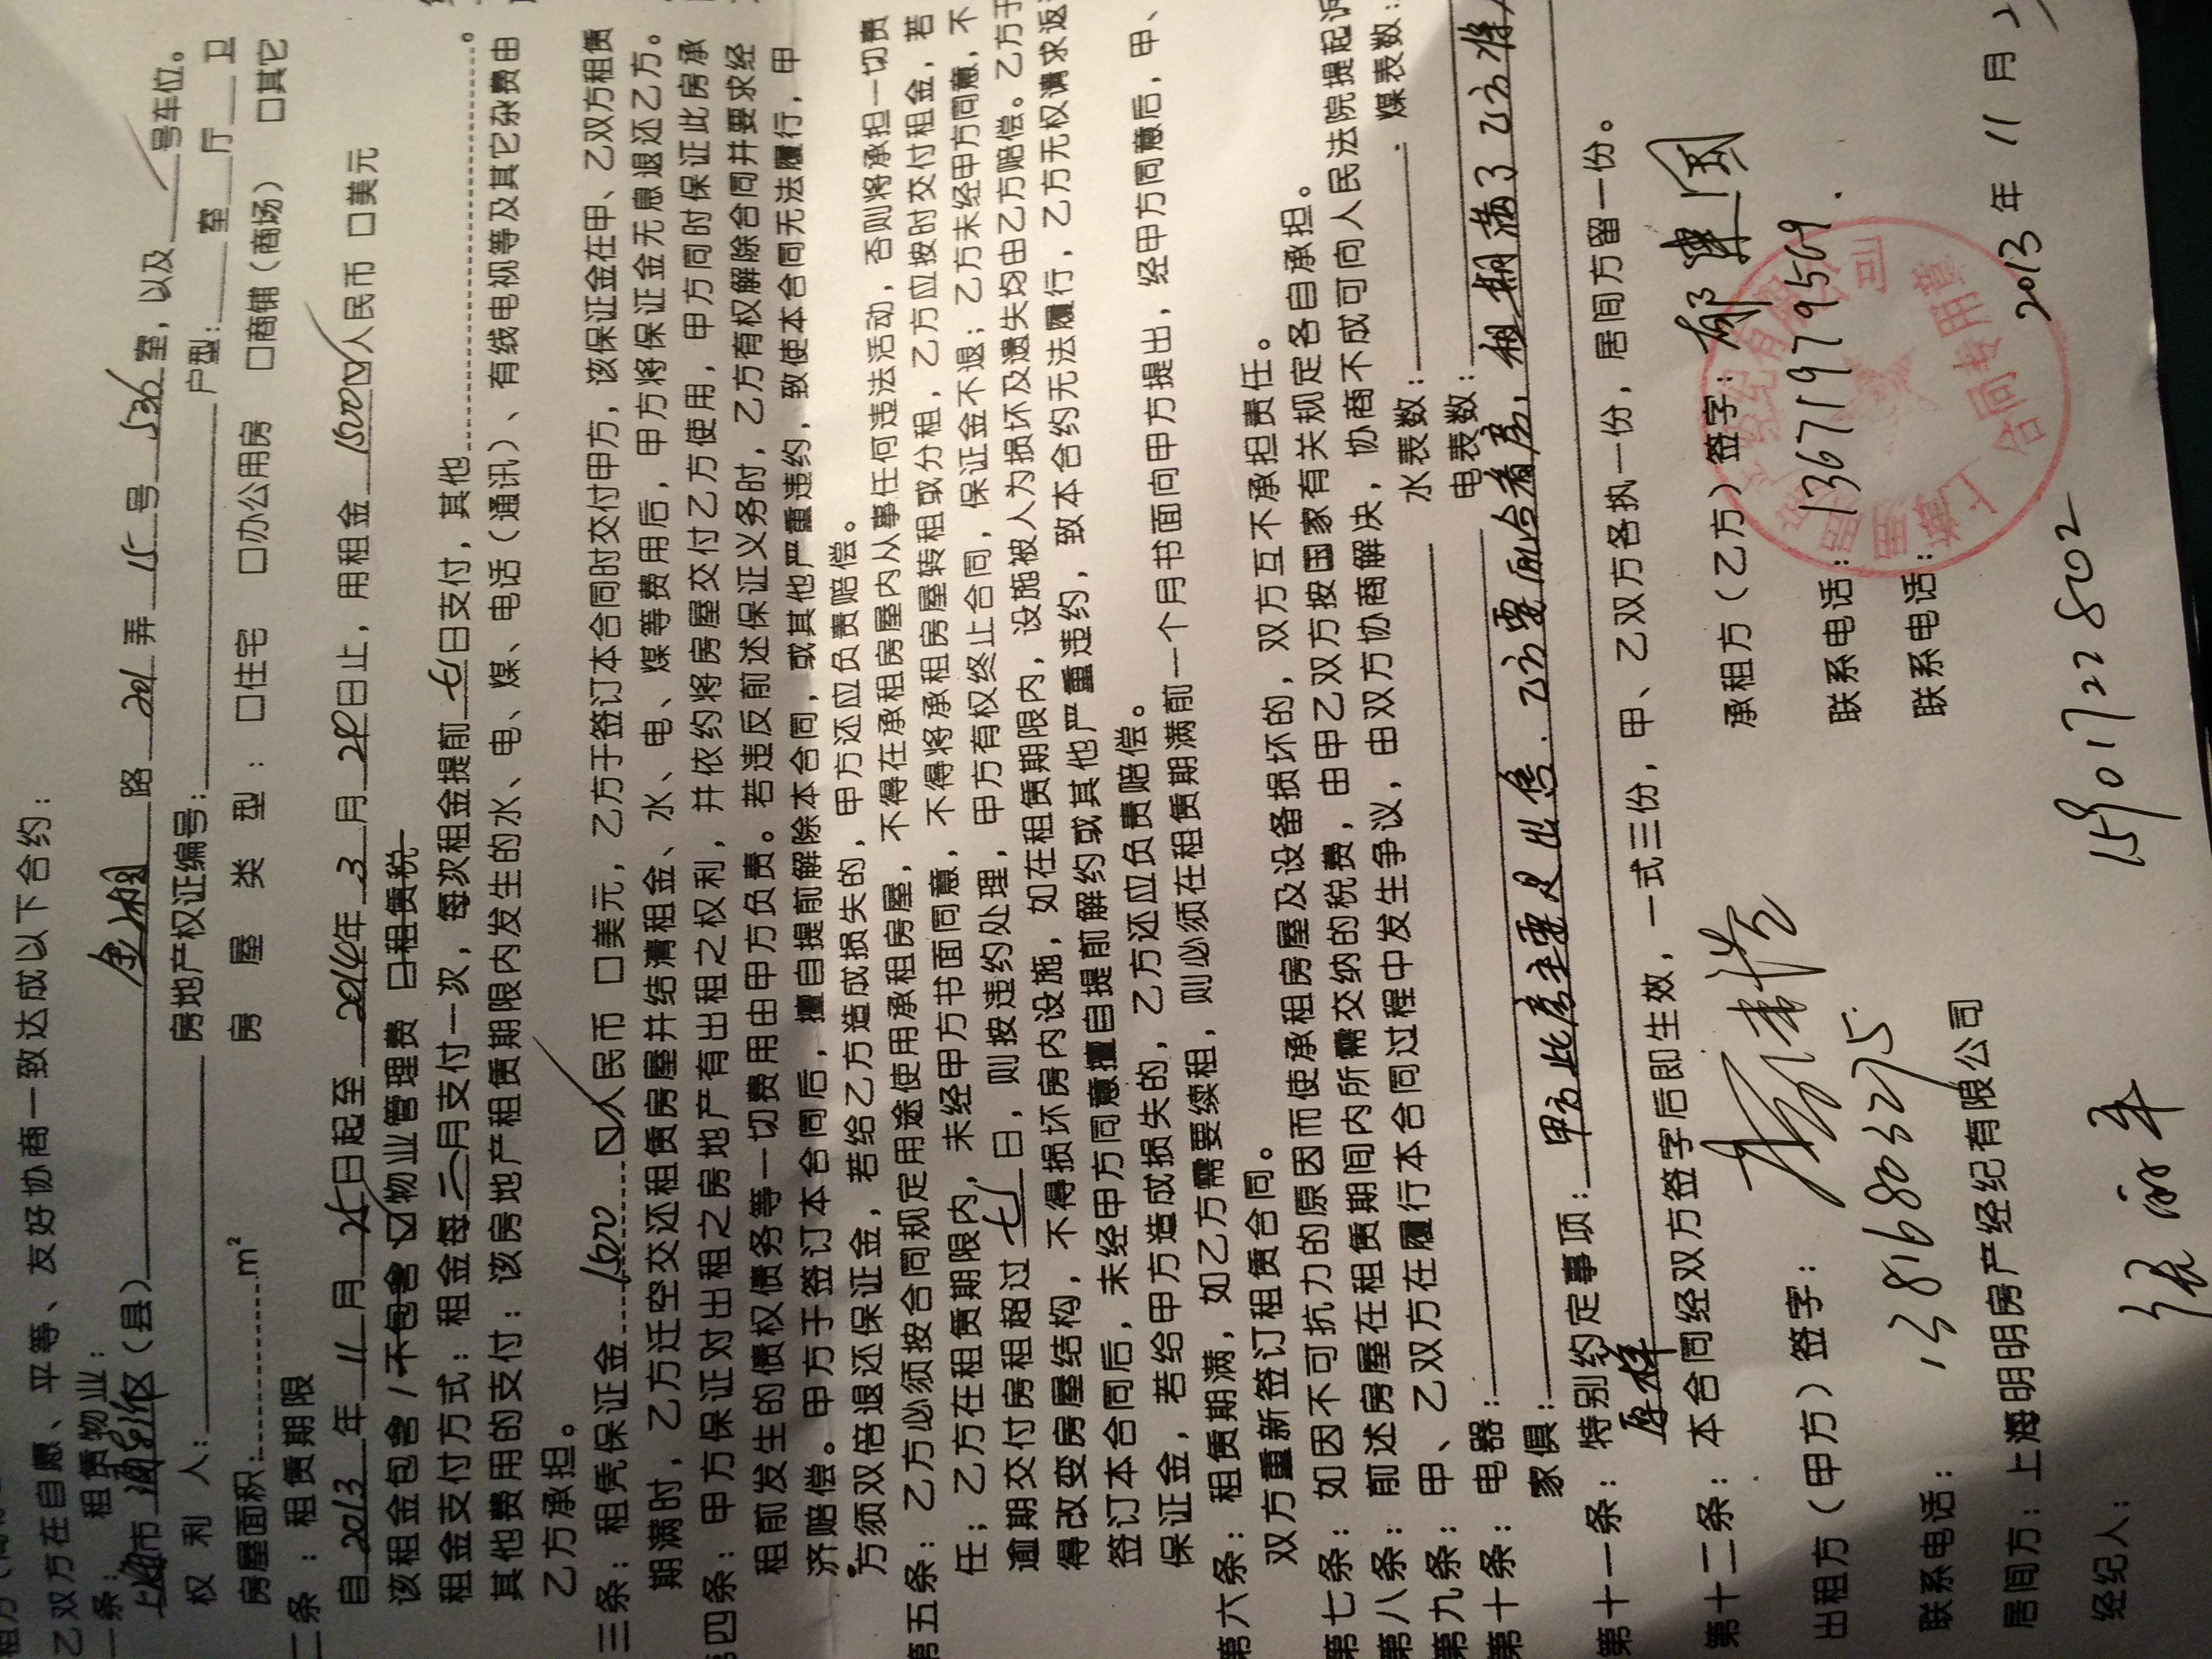 乙双方在自愿、平等、友好协商一致达成以下合约：
一条： 租赁物业：
上海市 浦东新区（县） 金湘 路 201 弄 15 号 536 室，以及 / 号车位。
权 利 人： 房地产权证编号： 户型： 室 厅 卫
房屋面积： m² 房 屋 类 型 ： □住宅 □办公用房 □商铺（商场） □其它
二条 ：租赁期限
自 2013 年 11 月 25 日起至 2014 年 3 月 24 日止，用租金 1500 ☑人民币 □美元
该租金包含 / 不包含 ☑物业管理费 □租赁税
租金支付方式：租金每 二 月支付一次，每次租金提前 七 日支付，其他 。
其他费用的支付：该房地产租赁期限内发生的水、电、煤、电话（通讯）、有线电视等及其它杂费由
乙方承担。
三条：租凭保证金 1500 ☑人民币 □美元，乙方于签订本合同时交付甲方，该保证金在甲、乙双方租赁
期满时，乙方迁空交还租赁房屋并结清租金、水、电、煤等费用后，甲方将保证金无息退还乙方。
第四条：甲方保证对出租之房地产有出租之权利，并依约将房屋交付乙方使用，甲方同时保证此房承
租前发生的债权债务等一切费用由甲方负责。若违反前述保证义务时，乙方有权解除合同并要求经
济赔偿。甲方于签订本合同后，擅自提前解除本合同，或其他严重违约，致使本合同无法履行，甲
方须双倍退还保证金，若给乙方造成损失的，甲方还应负责赔偿。
第五条：乙方必须按合同规定用途使用承租房屋，不得在承租房屋内从事任何违法活动，否则将承担一切责
任；乙方在租赁期限内，未经甲方书面同意，不得将承租房屋转租或分租，乙方应按时交付租金，若
逾期交付房租超过 七 日，则按违约处理，甲方有权终止合同，保证金不退；乙方未经甲方同意，不
得改变房屋结构，不得损坏房内设施，如在租赁期限内，设施被人为损坏及遗失均由乙方赔偿。乙方于
签订本合同后，未经甲方同意擅自提前解约或其他严重违约，致本合约无法履行，乙方无权请求返
保证金，若给甲方造成损失的，乙方还应负责赔偿。
第六条：租赁期满，如乙方需要续租，则必须在租赁期满前一个月书面向甲方提出，经甲方同意后，甲、
双方重新签订租赁合同。
第七条：如因不可抗力的原因而使承租房屋及设备损坏的，双方互不承担责任。
第八条：前述房屋在租赁期间内所需交纳的税费，由甲乙双方按国家有关规定各自承担。
第九条：甲、乙双方在履行本合同过程中发生争议，由双方协商解决，协商不成可向人民法院提起诉
第十条：电器： 水表数： 煤表数：
家俱： 电表数：
第十一条：特别约定事项： 甲方此房主要是出售，乙方要配合看房，租期满了乙方
原样
第十二条：本合同经双方签字后即生效，一式三份，甲、乙双方各执一份，居间方留一份。
出租方（甲方）签字：
承租方（乙方）签字：郁建国
联系电话： 13816803275
联系电话：13671979569
联系电话：
居间方：上海明明房产经纪有限公司
上海明明房产经纪有限公司
合同专用章
2013 年 11 月 2
经纪人： 张丽平 15901722802